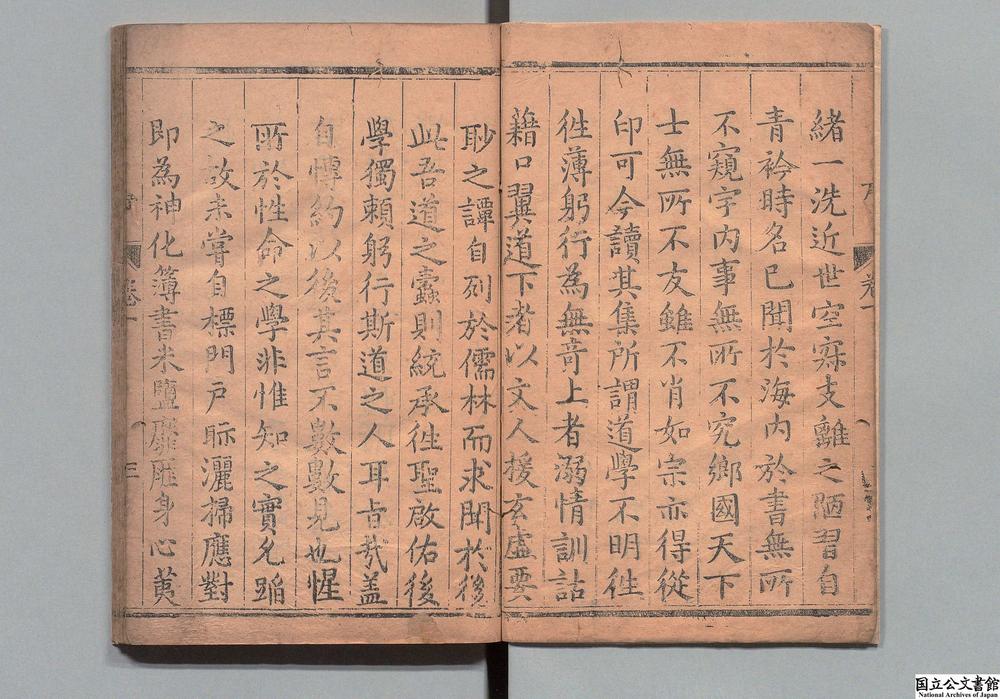 緒一洗近世空寂支離之陋習自
青衿時名已聞於海內於書無所
不窺宇內事無所不究鄉國天下
士無所不友雖不肖如宗亦得從
印可今讀其集所謂道學不明徃
徃薄躬行為無竒上者溺情訓詁
藉口翼道下者以文人援玄虛要
眇之譚自列於儒林而求聞於後
此吾道之蠹則統承徃聖啟佑後
學獨賴躬行斯道之人耳旨哉盖
自愽約以後其言不數數見也惺
所於性命之學非惟知之實允蹈
之故未嘗自標門戶眎灑掃應對
即為神化簿書米鹽靡匪身心
卷一
三
国立公文書館
National Archives of Japan